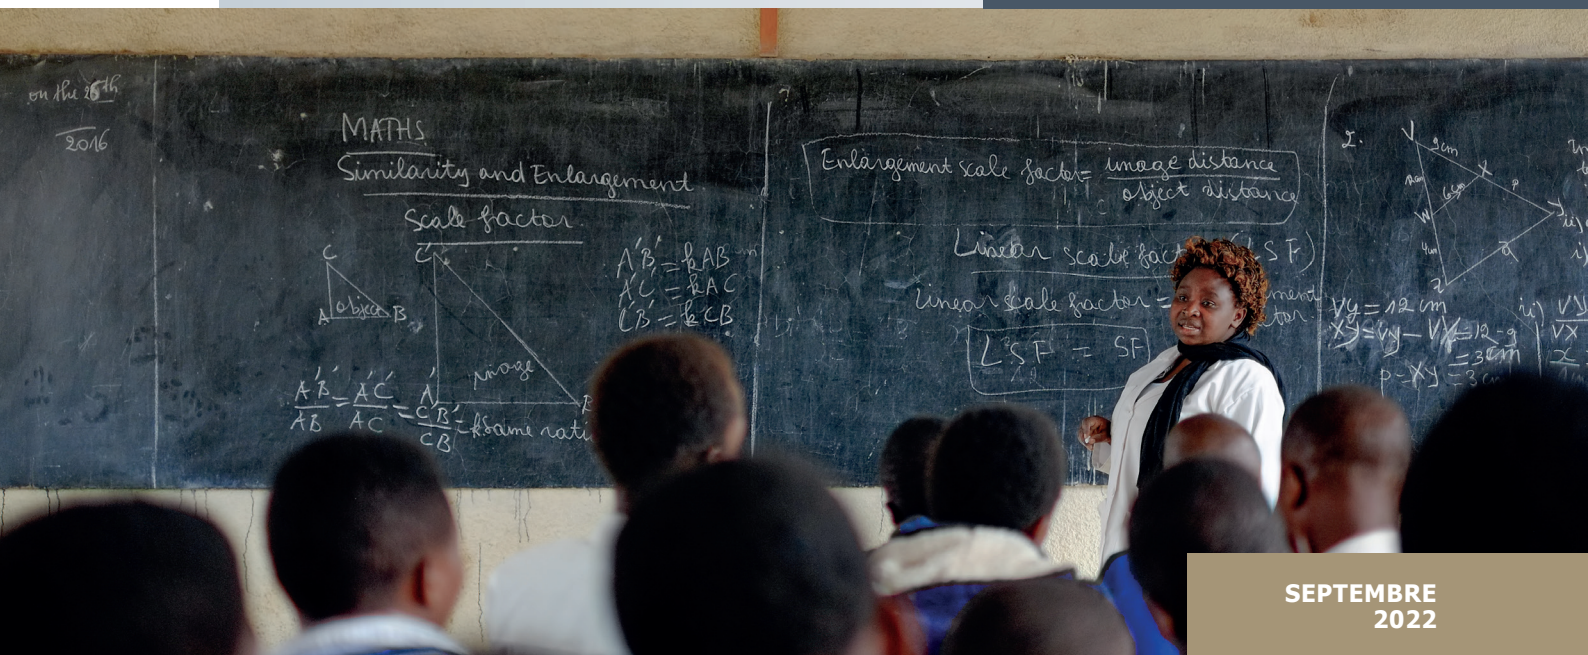 on the 25th
2016
MATHS
Similarity and Enlargement
scale factor.
C
A object B
C'
image
A'
A'B' = kAB
A'C' = kAC
C'B' = kCB
A'B' = A'C' = C'B' = k same
AB AC CB
Enlargement scale factor = image distance
object distance
Linear scale (LSF)
Linear scale factor =
LSF = SF
2.
V
9cm
X
W
Vy = 12 cm
Xy = Vy - VX = 12-9
= 3cm
p = Xy = 3cm
ii) VY
VX
SEPTEMBRE
2022